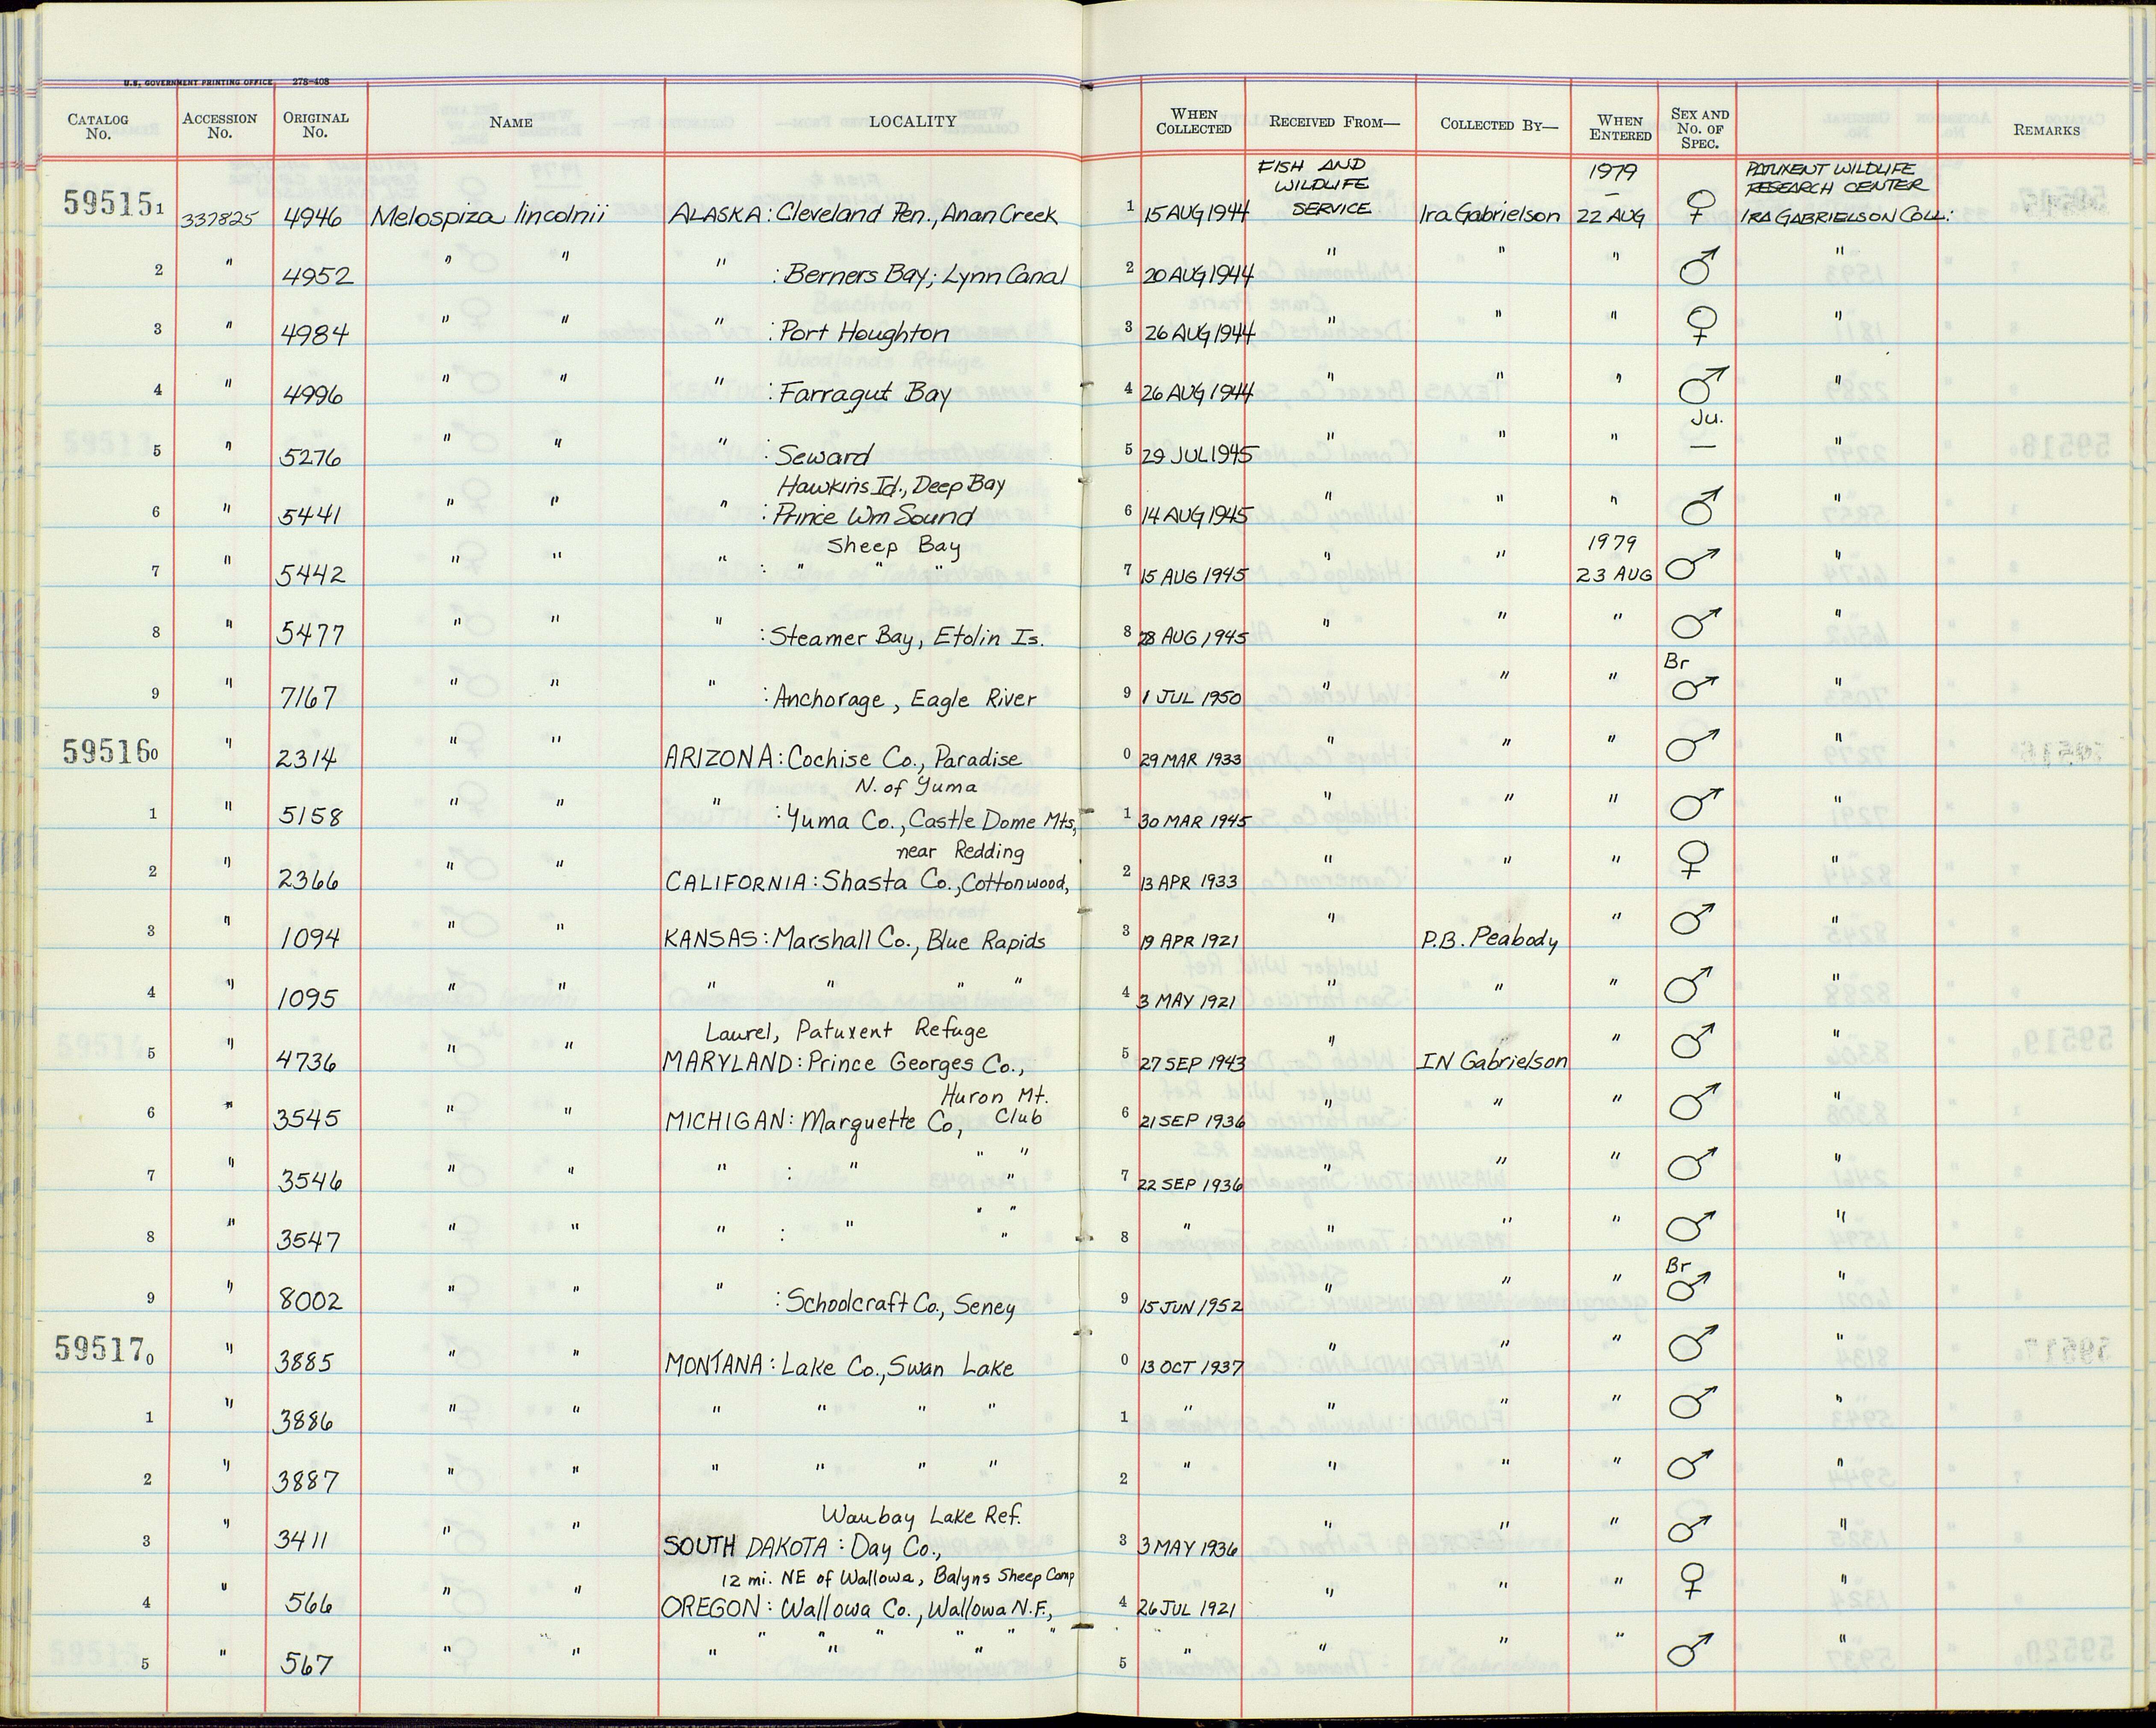 U.S. GOVERNMENT PRINTING OFFICE 278-408
CATALOG No. ACCESSION No. ORIGINAL No. NAME LOCALITY WHEN COLLECTED RECEIVED FROM— COLLECTED BY— WHEN ENTERED SEX AND No. OF SPEC. REMARKS
FISH AND WILDLIFE SERVICE 1979 — PATUXENT WILDLIFE RESEARCH CENTER
595151 337825 4946 Melospiza lincolnii ALASKA: Cleveland Pen., Anan Creek 1 15 AUG 1944 Ira Gabrielson 22 AUG ♀ IRA GABRIELSON COLL.
2 " 4952 " " " : Berners Bay; Lynn Canal 2 20 AUG 1944 " " " ♂ "
3 " 4984 " " " : Port Houghton 3 26 AUG 1944 " " " ♀ "
4 " 4996 " " " : Farragut Bay 4 26 AUG 1944 " " " ♂ "
Ju.
5 " 5276 " " " : Seward 5 29 JUL 1945 " " " — "
Hawkins Id., Deep Bay
6 " 5441 " " " : Prince Wm Sound 6 14 AUG 1945 " " " ♂ "
Sheep Bay 1979
7 " 5442 " " " : " " " 7 15 AUG 1945 " " 23 AUG ♂ "
8 " 5477 " " " : Steamer Bay, Etolin Is. 8 28 AUG 1945 " " " ♂ "
Br
9 " 7167 " " " : Anchorage, Eagle River 9 1 JUL 1950 " " " ♂ "
595160 " 2314 " " ARIZONA: Cochise Co., Paradise 0 29 MAR 1933 " " " ♂ "
N. of Yuma
1 " 5158 " " " : Yuma Co., Castle Dome Mts, 1 30 MAR 1945 " " " ♂ "
near Redding
2 " 2366 " " CALIFORNIA: Shasta Co., Cottonwood, 2 13 APR 1933 " " " ♀ "
3 " 1094 " " KANSAS: Marshall Co., Blue Rapids 3 19 APR 1921 " P.B. Peabody " ♂ "
4 " 1095 " " " " " " 4 3 MAY 1921 " " " ♂ "
Laurel, Patuxent Refuge
5 " 4736 " " MARYLAND: Prince Georges Co., 5 27 SEP 1943 " IN Gabrielson " ♂ "
Huron Mt.
6 " 3545 " " MICHIGAN: Marquette Co, Club 6 21 SEP 1936 " " " ♂ "
" "
7 " 3546 " " " : " " 7 22 SEP 1936 " " " ♂ "
" "
8 " 3547 " " " : " " 8 " " " " ♂ "
Br
9 " 8002 " " " : Schoolcraft Co., Seney 9 15 JUN 1952 " " " ♂ "
595170 " 3885 " " MONTANA: Lake Co., Swan Lake 0 13 OCT 1937 " " " ♂ "
1 " 3886 " " " " " " 1 " " " " ♂ "
2 " 3887 " " " " " " 2 " " " " ♂ "
Waubay Lake Ref.
3 " 3411 " " SOUTH DAKOTA: Day Co., 3 3 MAY 1936 " " " ♂ "
12 mi. NE of Wallowa, Balyns Sheep Camp
4 " 566 " " OREGON: Wallowa Co., Wallowa N.F., 4 26 JUL 1921 " " " ♀ "
" " " " " "
5 " 567 " " " " " 5 " " " " ♂ "